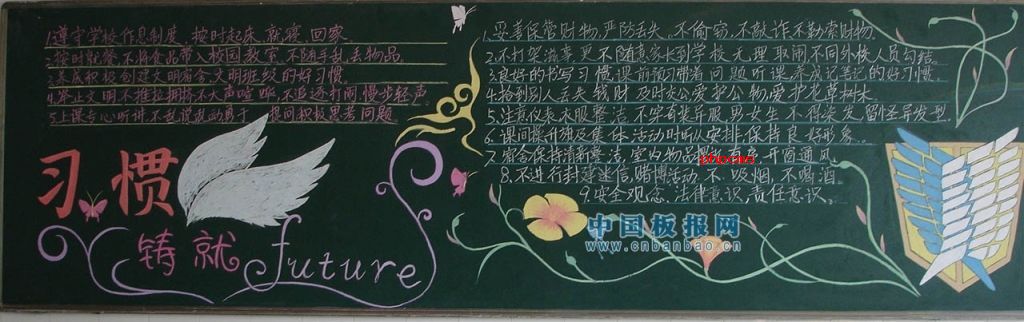 1.遵守学校作息制度、按时起床、就寝、回家.
2.按时就餐不将食品带入校园教室不随手乱丢物品
3.养成积极创建文明宿舍、文明班级的好习惯.
4.举止文明.不推拉拥挤不大声喧哗、不追逐打闹.慢步轻声
5.上课专心听讲不乱说乱动勇于 提问积极思考问题
习惯
铸就
future
1.妥善保管财物,严防丢失、不偷窃、不敲诈不勒索财物
2.不打架滋事更不随意家长到学校无理取闹不同外校人员勾结.
3.良好的书写习惯课前预习带着问题听课养成记笔记的好习惯.
4.拾到别人丢失钱财及时交公爱护公物,爱护花草树木
5.注意仪表衣服整洁.不穿奇装异服男女生不得染发,留怪异发型.
6.课间操升旗及集体活动时听从安排保持良好形象。
7.宿舍保持清新整洁,室内物品摆放有序开窗通风
8.不进行封建迷信,赌博活动不吸烟不喝酒
9.安全观念、法律意识,责任意识。
中国板报网
www.cnbanbao.cn